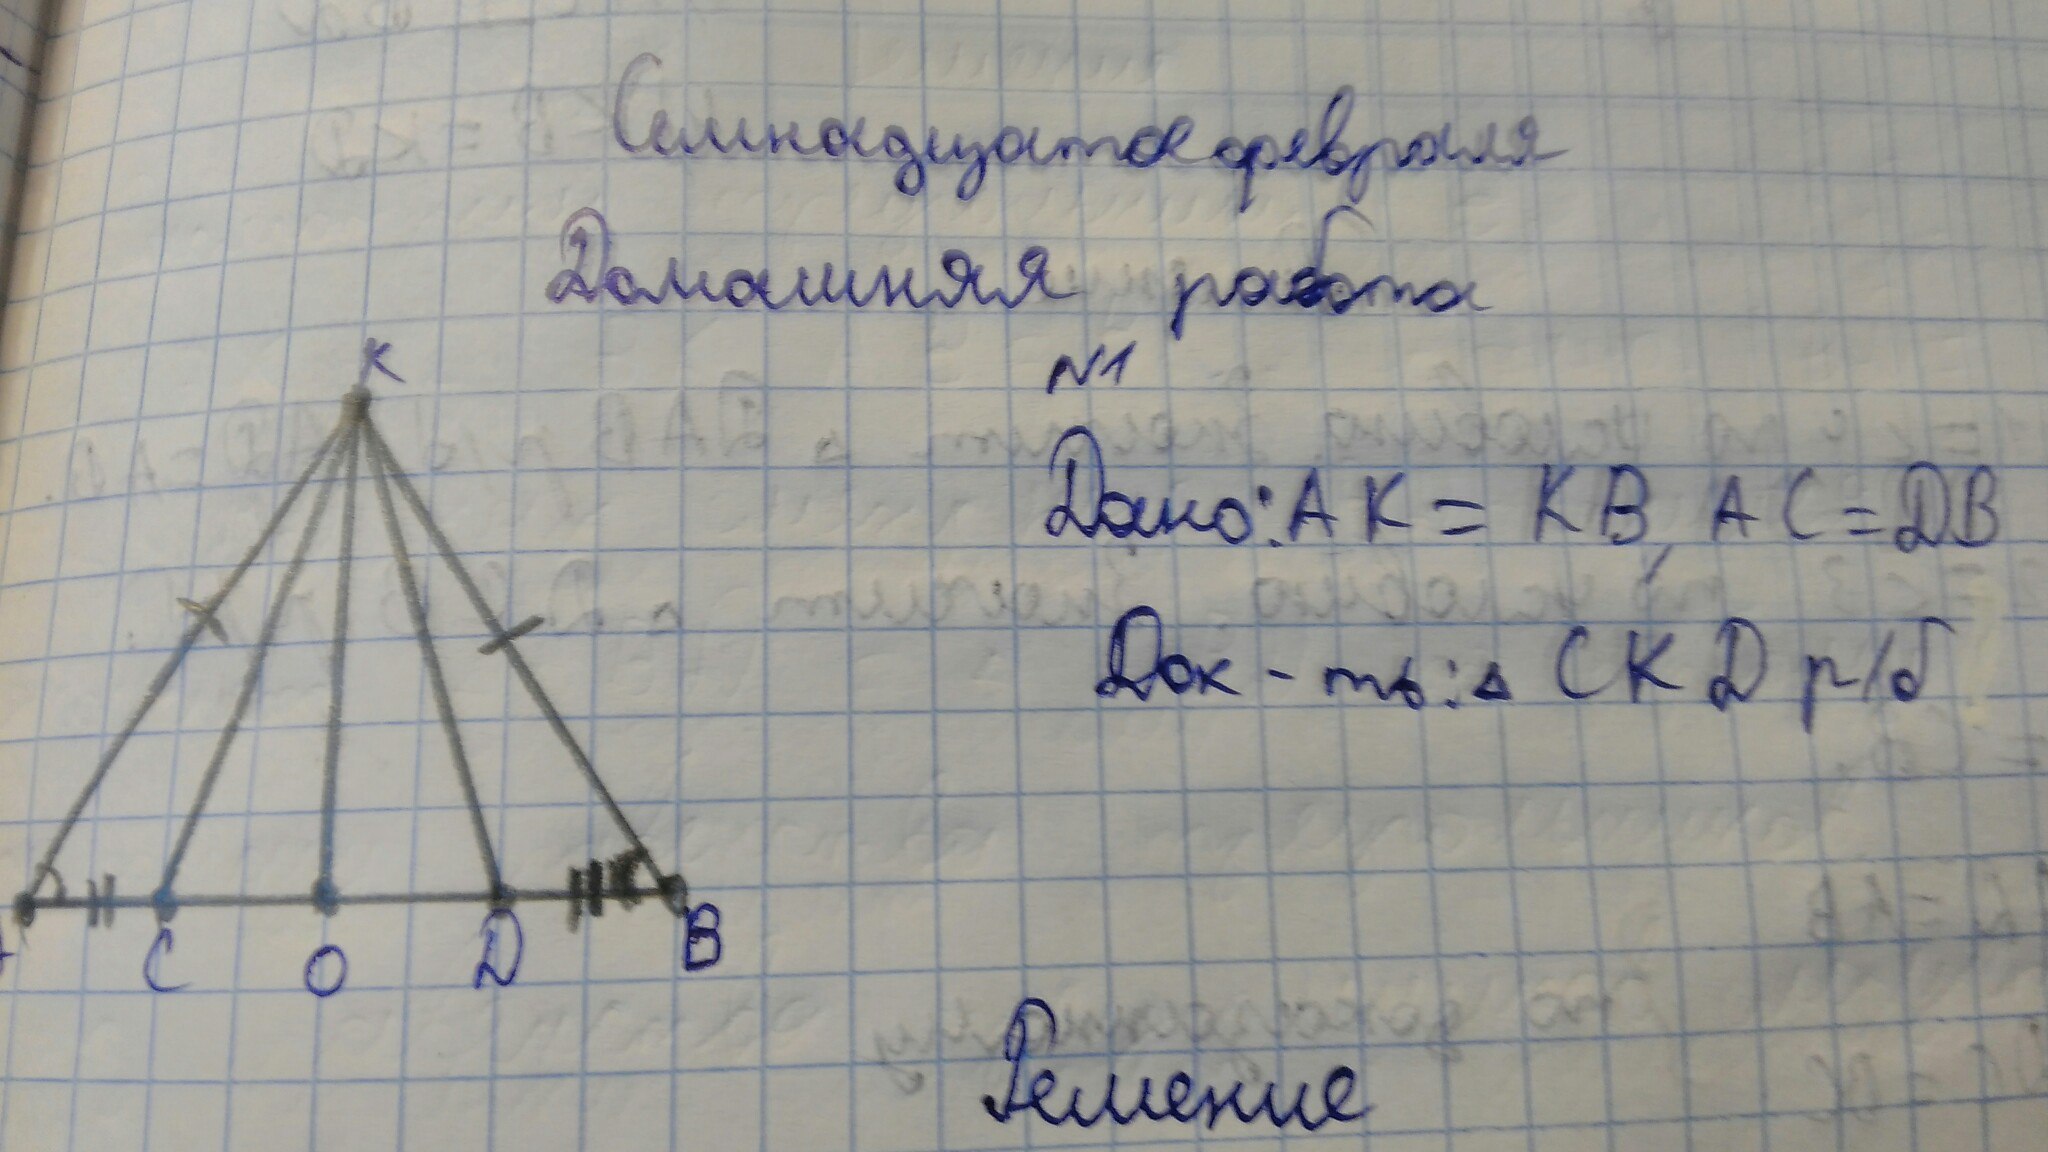 Семнадцатое февраля
Домашняя работа
N1
K
Дано: AK = KB, AC = DB
Док-ть: △ CKD р/б
C O D B
Решение